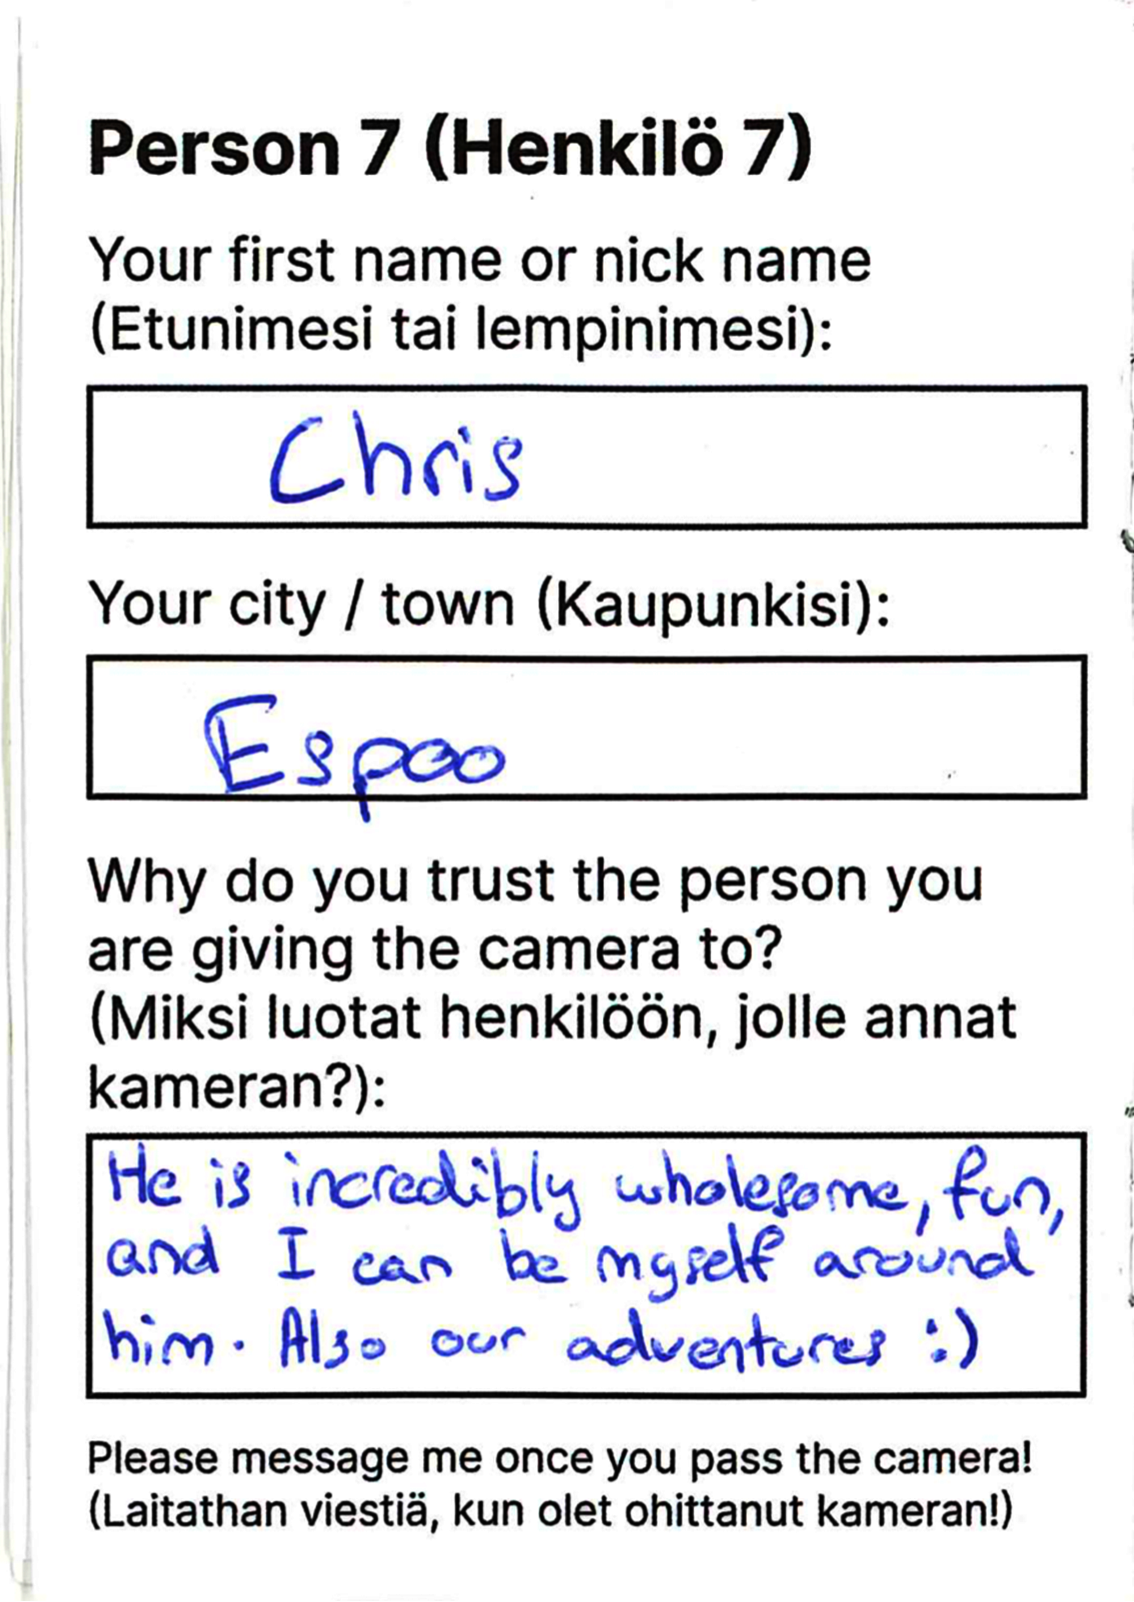 Person 7 (Henkilö 7)
Your first name or nick name
(Etunimesi tai lempinimesi):
Chris
Your city / town (Kaupunkisi):
Espoo
Why do you trust the person you
are giving the camera to?
(Miksi luotat henkilöön, jolle annat
kameran?):
He is incredibly wholesome, fun,
and I can be myself around
him. Also our adventures :)
Please message me once you pass the camera!
(Laitathan viestiä, kun olet ohittanut kameran!)